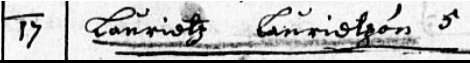 17 Lauritz Lauritzøn 5